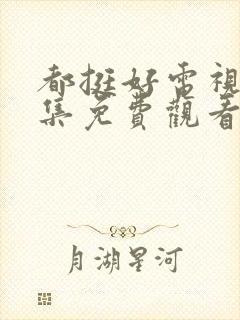 都挺好電視
集免費觀看
月湖星河